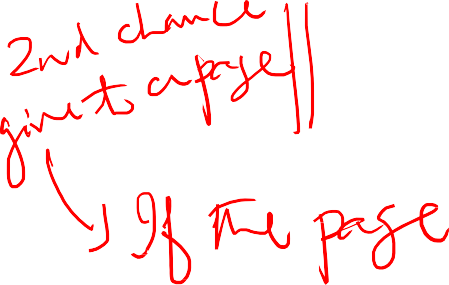 2nd chance
give to a page
If the page